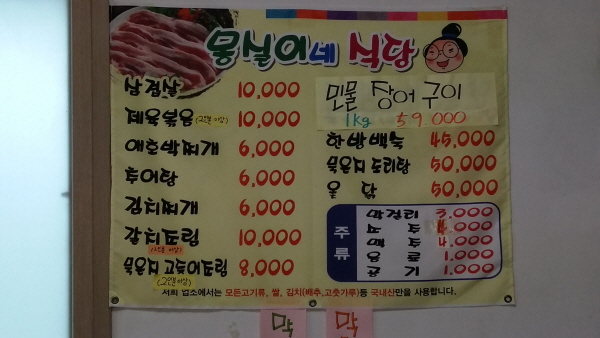 몽실이네 식당
삼겹살 10,000
제육볶음 (2인분 이상) 10,000
애호박찌개 6,000
추어탕 6,000
김치찌개 6,000
갈치조림 (2인분 이상) 10,000
묵은지 고등어조림 (2인분 이상) 8,000
민물 장어 구이
1kg 59000
한방백숙 45,000
묵은지 도리탕 50,000
옻 닭 50,000
주류
막걸리 3.000
소 주 4.000
맥 주 4.000
음 료 1.000
공 기 1.000
저희 업소에서는 모든고기류, 쌀, 김치(배추,고춧가루)등 국내산만을 사용합니다.
막 막